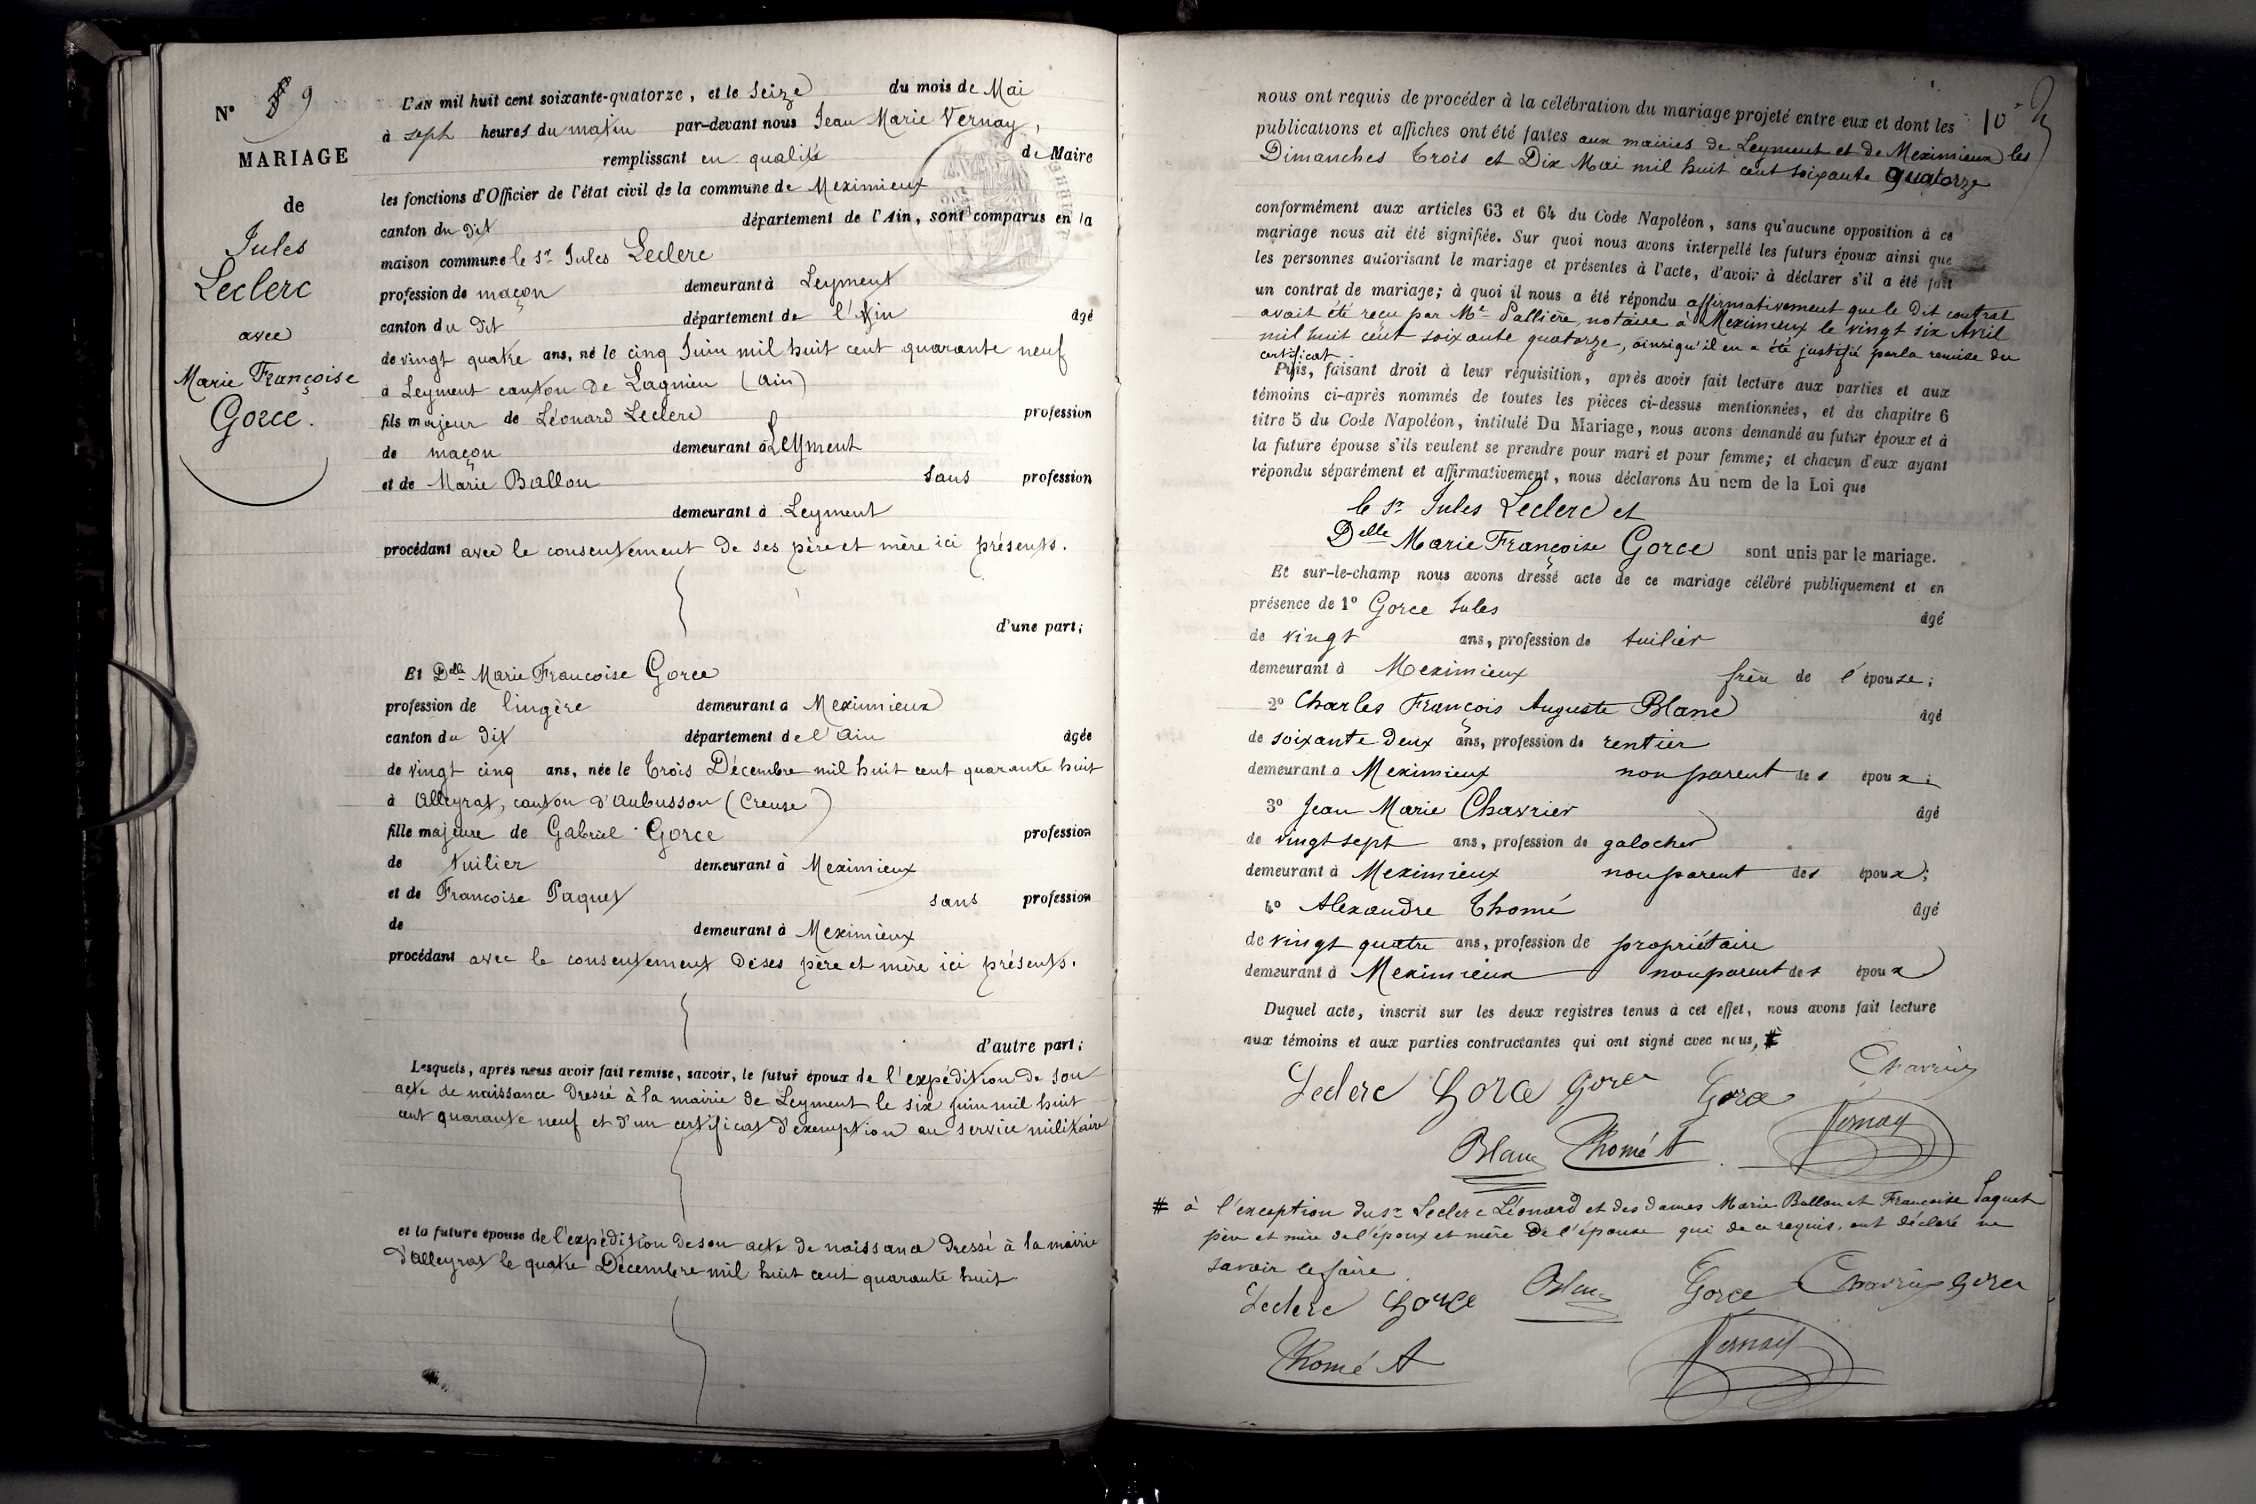 N° 9
MARIAGE
de
Jules
Leclerc
avec
Marie Françoise
Gorce.
L'AN mil huit cent soixante-quatorze, et le Seize du mois de Mai
à sept heures du matin par-devant nous Jean Marie Vernay,
remplissant en qualité de Maire
les fonctions d'Officier de l'état civil de la commune de Meximieux
canton du dit département de l'Ain, sont comparus en la
maison commune le Sr Jules Leclerc
profession de maçon demeurant à Leyment
canton du dit département de l'Ain âgé
de vingt quatre ans, né le cinq Juin mil huit cent quarante neuf
à Leyment canton de Lagnieu (Ain)
fils majeur de Léonard Leclerc profession
de maçon demeurant à Leyment
et de Marie Ballon sans profession
demeurant à Leyment
procédant avec le consentement de ses père et mère ici présents.
d'une part;
Et Delle Marie Francoise Gorce
profession de lingère demeurant à Meximieux
canton du dit département de l'Ain âgée
de vingt cinq ans, née le trois Décembre mil huit cent quarante huit
à Alleyrat, canton d'Aubusson (Creuse)
fille majeure de Gabriel Gorce profession
de tuilier demeurant à Meximieux
et de Francoise Paquet sans profession
de demeurant à Meximieux
procédant avec le consentement de ses père et mère ici présents.
d'autre part;
Lesquels, après nous avoir fait remise, savoir, le futur époux de l'expédition de son
acte de naissance dressé à la mairie de Leyment le six Juin mil huit
cent quarante neuf et d'un certificat d'exemption au service militaire
et la future épouse de l'expédition de son acte de naissance dressé à la mairie
d'Alleyrat le quatre Décembre mil huit cent quarante huit
10
nous ont requis de procéder à la célébration du mariage projeté entre eux et dont les
publications et affiches ont été faites aux mairies de Leyment et de Meximieux les
Dimanches trois et Dix Mai mil huit cent soixante quatorze
conformément aux articles 63 et 64 du Code Napoléon, sans qu'aucune opposition à ce
mariage nous ait été signifiée. Sur quoi nous avons interpellé les futurs époux ainsi que
les personnes autorisant le mariage et présentes à l'acte, d'avoir à déclarer s'il a été fait
un contrat de mariage; à quoi il nous a été répondu affirmativement que le dit contrat
avait été reçu par Me Pallière, notaire à Meximieux le vingt six Avril
mil huit cent soixante quatorze, ainsi qu'il en a été justifié par la remise du
certificat.
Puis, faisant droit à leur réquisition, après avoir fait lecture aux parties et aux
témoins ci-après nommés de toutes les pièces ci-dessus mentionnées, et du chapitre 6
titre 5 du Code Napoléon, intitulé Du Mariage, nous avons demandé au futur époux et à
la future épouse s'ils veulent se prendre pour mari et pour femme; et chacun d'eux ayant
répondu séparément et affirmativement, nous déclarons Au nom de la Loi que
le Sr Jules Leclerc et
Delle Marie Françoise Gorce sont unis par le mariage.
Et sur-le-champ nous avons dressé acte de ce mariage célébré publiquement et en
présence de 1° Gorce Jules âgé
de vingt ans, profession de tuilier
demeurant à Meximieux frère de l'épouse;
2° Charles François Auguste Blanc âgé
de soixante deux ans, profession de rentier
demeurant à Meximieux non parent des époux;
3° Jean Marie Chavrier âgé
de vingt sept ans, profession de galocher
demeurant à Meximieux non parent des époux;
4° Alexandre Thomé âgé
de vingt quatre ans, profession de propriétaire
demeurant à Meximieux non parent des époux
Duquel acte, inscrit sur les deux registres tenus à cet effet, nous avons fait lecture
aux témoins et aux parties contractantes qui ont signé avec nous, #
Leclerc Gorce Gorce Gorce Chavrier
Blanc Thomé A Vernay
# à l'exception du Sr Leclerc Léonard et des dames Marie Ballon et Francoise Paquet
père et mère de l'époux et mère de l'épouse qui de ce requis, ont déclaré ne
savoir le faire.
Leclerc Gorce Blanc Gorce Chavrier Gorce
Thomé A Vernay